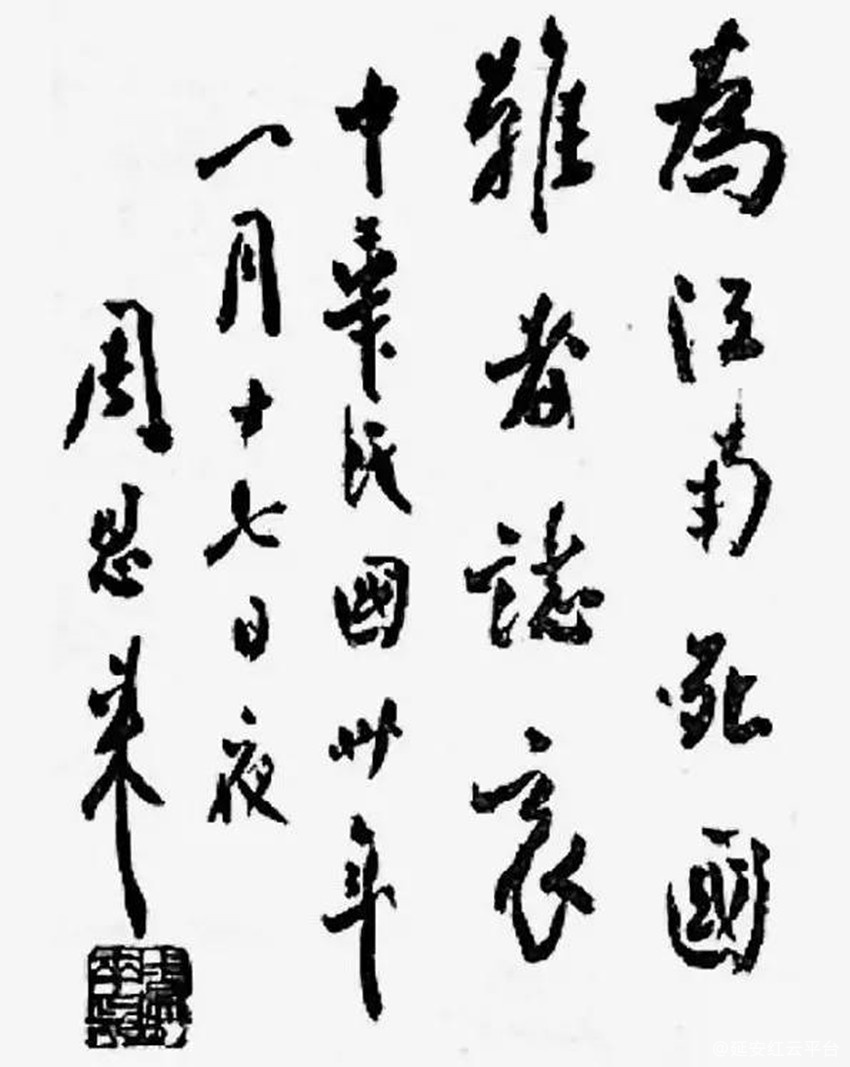 為江南死國
難者誌哀
中華民國卅年
一月十七日夜
周恩来
@延安红云平台